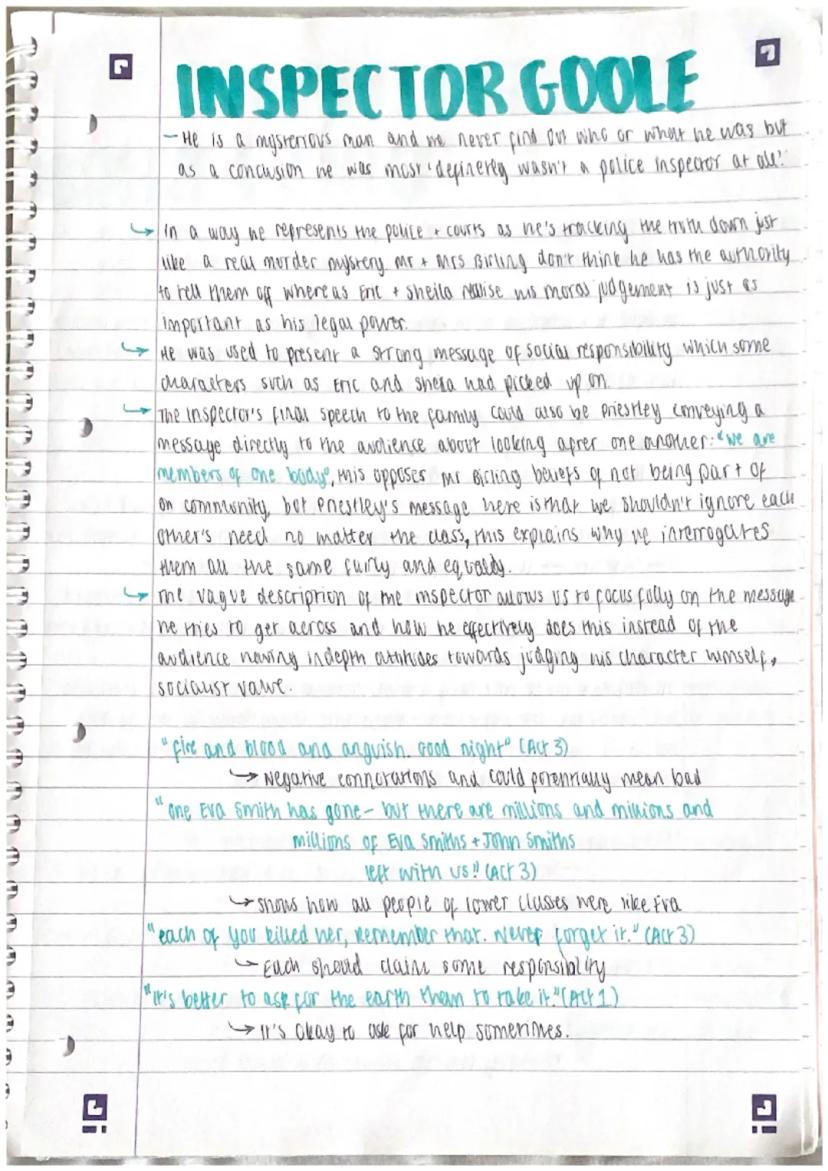 INSPECTOR GOOLE
- He is a mysterious man and we never find out who or what he was but
as a conclusion he was most 'definetely wasn't a police inspector at all'.
↳ In a way he represents the police + courts as he's tracking the truth down just
like a real murder mystery. Mr + Mrs Birling don't think he has the authority
to tell them off whereas Eric + Sheila realise his moral judgement is just as
important as his legal power.
↳ He was used to present a strong message of social responsibility which some
characters such as Eric and Sheila had picked up on.
↳ The Inspector's final speech to the family could also be Priestley conveying a
message directly to the audience about looking after one another: "we are
members of one body", this opposes Mr Birling beliefs of not being part of
on community, but Priestley's message here is that we shouldn't ignore each
other's need no matter the class, this explains why he interrogates
them all the same fairly and equally.
↳ The vague description of the inspector allows us to focus fully on the message
he tries to get across and how he effectively does this instead of the
audience having indepth attitudes towards judging his character himself,
socialist value.
"fire and blood and anguish. Good night" (Act 3)
↳ Negative connotations and could potentially mean bad
"One Eva Smith has gone - but there are millions and millions and
millions of Eva Smiths + John Smiths
left with us!" (Act 3)
↳ shows how all people of lower classes were like Eva
"each of you killed her, Remember that. Never forget it." (Act 3)
↳ Each should claim some responsiblity
"It's better to ask for the earth then to take it." (Act 1)
↳ It's Okay to ask for help sometimes.